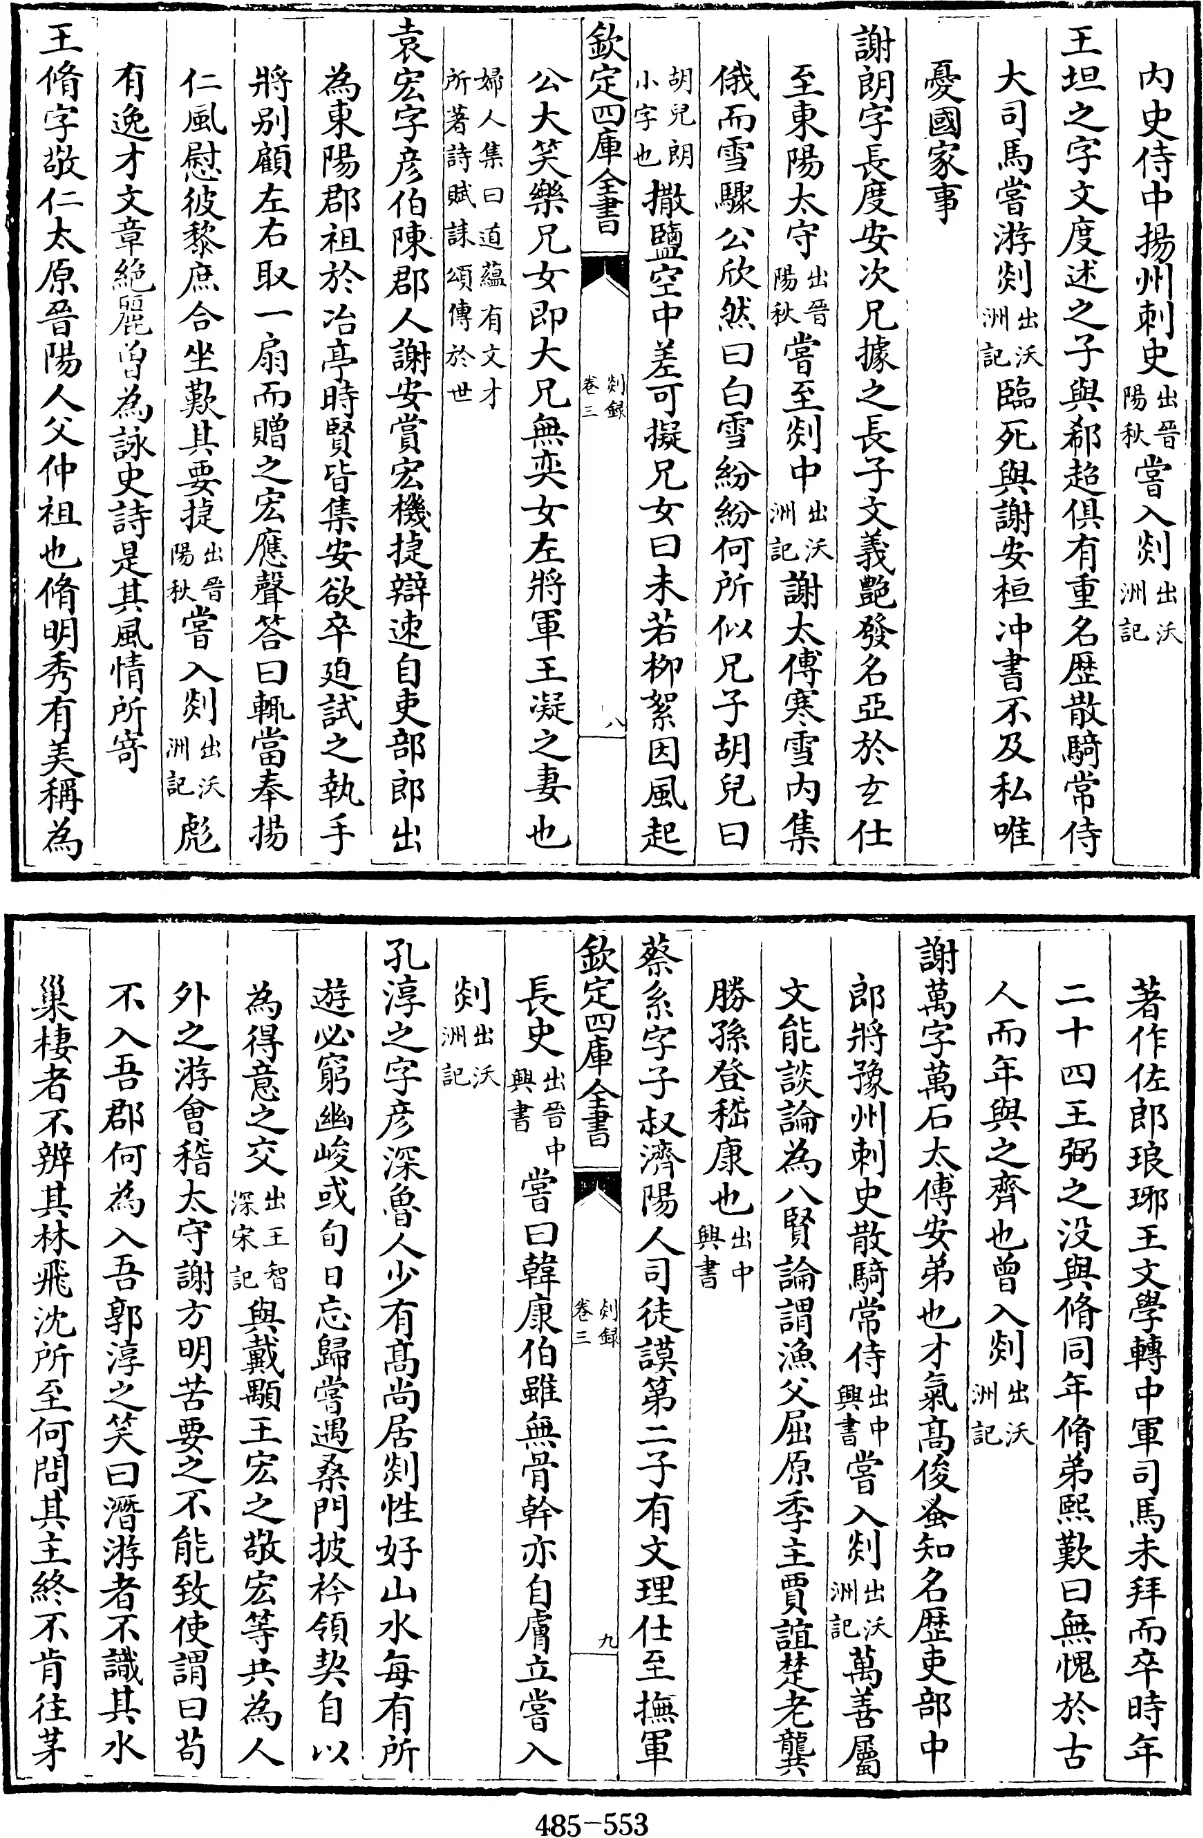 内史侍中揚州刺史出晉陽秋嘗入剡出沃洲記
王坦之字文度述之子與郗超俱有重名歴散騎常侍
大司馬嘗游剡出沃洲記臨死與謝安桓冲書不及私唯
憂國家事
謝朗字長度安次兄據之長子文義艷發名亞於玄仕
至東陽太守出晉陽秋嘗至剡中出沃洲記謝太傅寒雪内集
俄而雪驟公欣然曰白雪紛紛何所似兄子胡兒曰
胡兒朗小字也撒鹽空中差可擬兄女曰未若柳絮因風起
欽定四庫全書 剡録卷三 八
公大笑樂兄女即大兄無奕女左將軍王凝之妻也
婦人集曰道藴有文才所著詩賦誄頌傳於世
袁宏字彦伯陳郡人謝安賞宏機捷辯速自吏部郎出
為東陽郡祖於冶亭時賢皆集安欲卒廹試之執手
將别顧左右取一扇而贈之宏應聲答曰輒當奉揚
仁風慰彼黎庶合坐歎其要捷出晉陽秋嘗入剡出沃洲記彪
有逸才文章絶麗曽為詠史詩是其風情所寄
王脩字敬仁太原晉陽人父仲祖也脩明秀有美稱為
著作佐郎琅琊王文學轉中軍司馬未拜而卒時年
二十四王弼之没與脩同年脩弟熙歎曰無愧於古
人而年與之齊也曽入剡出沃洲記
謝萬字萬石太傅安弟也才氣髙俊蚤知名歴吏部中
郎將豫州刺史散騎常侍出中興書嘗入剡出沃洲記萬善屬
文能談論為八賢論謂漁父屈原季主賈誼楚老龔
勝孫登嵇康也出中興書
蔡系字子叔濟陽人司徒謨第二子有文理仕至撫軍
欽定四庫全書 剡録卷三 九
長史出晉中興書嘗曰韓康伯雖無骨幹亦自膚立嘗入
剡出沃洲記
孔淳之字彦深魯人少有髙尚居剡性好山水每有所
遊必窮幽峻或旬日忘歸嘗遇桑門披衿領契自以
為得意之交出王智深宋記與戴顒王宏之敬宏等共為人
外之游㑹稽太守謝方明苦要之不能致使謂曰苟
不入吾郡何為入吾郭淳之笑曰潛游者不識其水
巢棲者不辨其林飛沈所至何問其主終不肯往茅
485-553